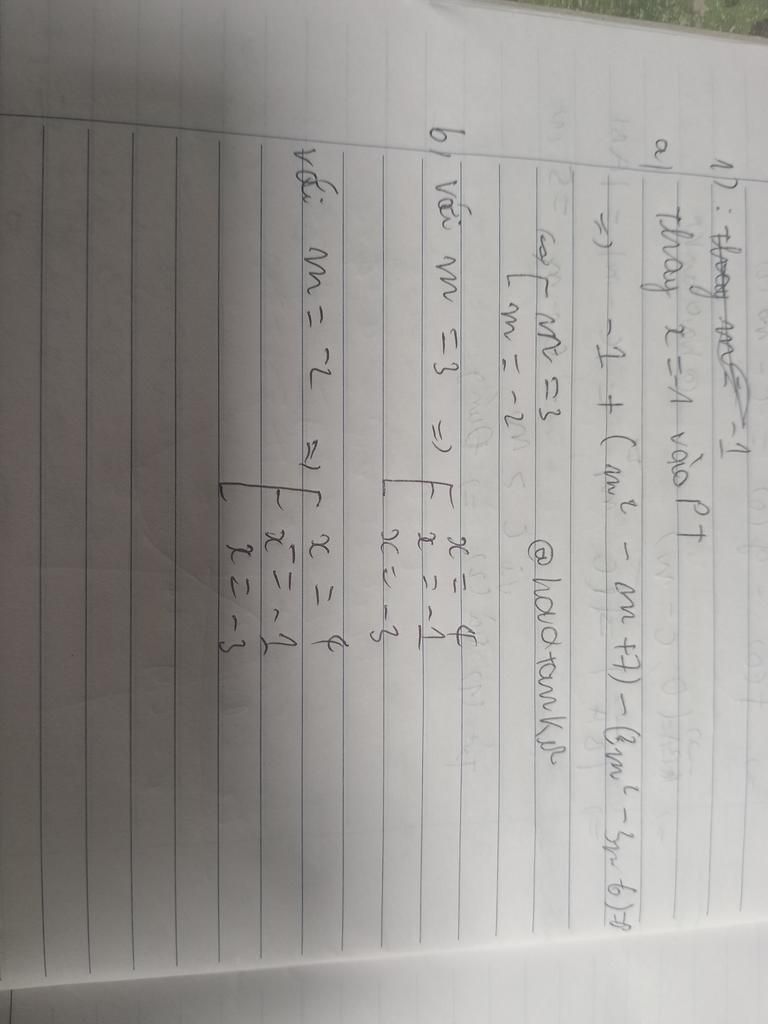 17: thay m = -1
a) thay x = -1 vào PT
=> -1 + (m² - m + 7) - (3m² - 3m - 6) = 0
<=> [ m = 3
m = -2
@haotank
b) với m = 3 => [ x = 4
x = -1
x = -3
với m = -2 => [ x = 4
x = -1
x = -3